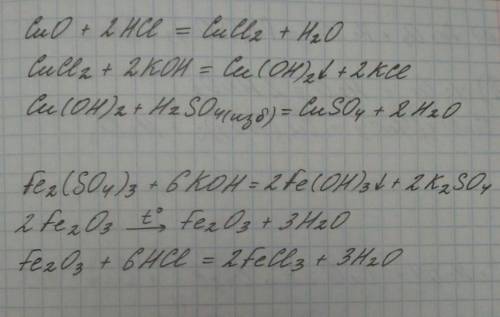 CuO + 2HCl = CuCl₂ + H₂O
CuCl₂ + 2KOH = Cu(OH)₂↓ + 2KCl
Cu(OH)₂ + H₂SO₄(изб) = CuSO₄ + 2H₂O
Fe₂(SO₄)₃ + 6KOH = 2Fe(OH)₃↓ + 2K₂SO₄
2Fe₂O₃ t°→ Fe₂O₃ + 3H₂O
Fe₂O₃ + 6HCl = 2FeCl₃ + 3H₂O